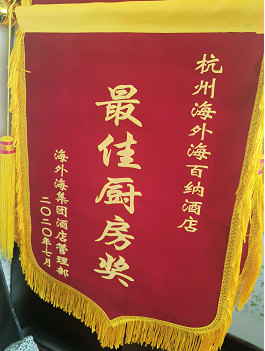 杭州海外海百纳酒店
最佳厨房奖
海外海集团酒店管理部
二〇二〇年七月